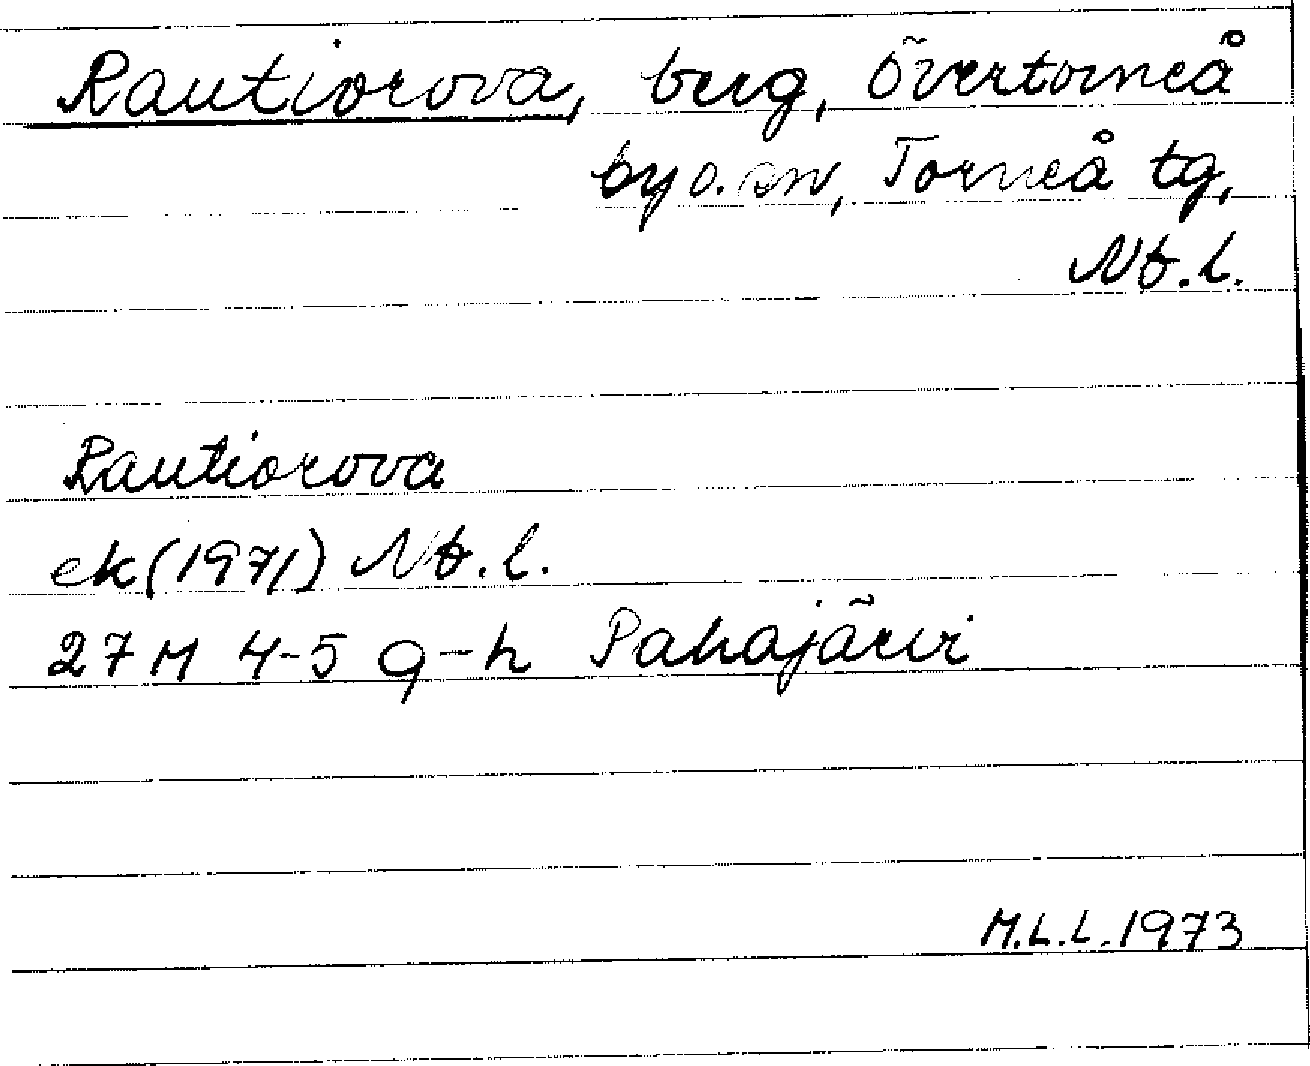 Rautiorova, berg, Övertorneå
by o. sn, Torneå tg,
Nb. l.
Rautiorova
ek (1971) Nb. l.
27 M 4-5 g-h Pahajärvi
M.L.L. 1973